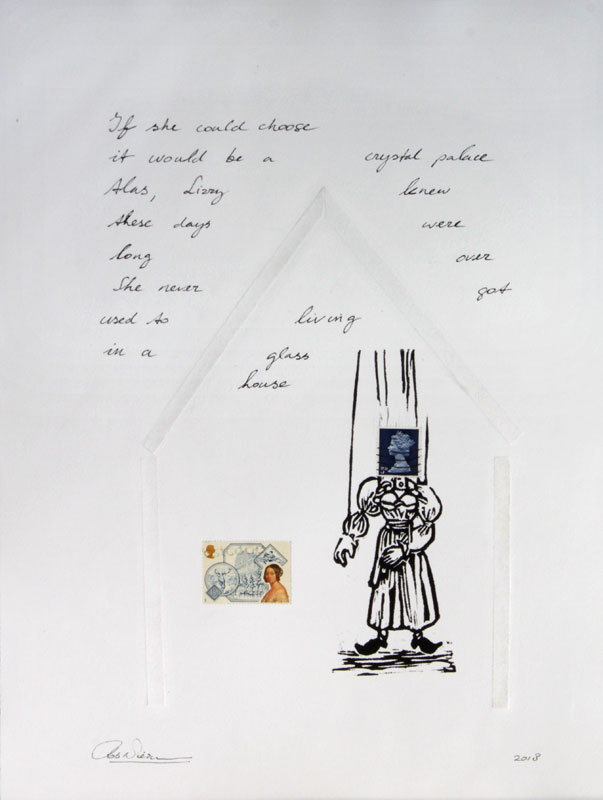 If she could choose
it would be a crystal palace
Alas, Lizzy knew
these days were
long over
She never got
used to living
in a glass
house
2018